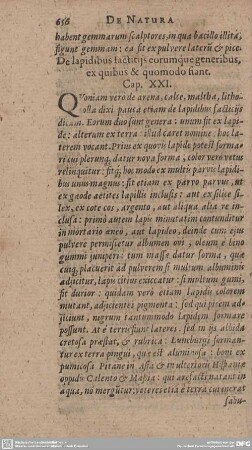 656 DE NATURA
habent gemmarum scalptores, in qua bacillo illita,
figunt gemmam: ea fit ex pulvere laterū & pice.
De lapidibus factitijs eorumque generibus,
ex quibus & quomodo fiant.
Cap. XXI.
QVoniam vero de arena, calce, maltha, litho-
colla dixi, pauca etiam de lapidibus factitijs
dicam. Eorum duo sunt genera: unum fit ex lapi-
de: alterum ex terra: illud caret nomine, hoc la-
terem vocant. Prius ex quovis lapide potest forma-
ri cui plerunq; datur nova forma, color vero vetus
relinquitur: fitq; hoc modo ex multis parvis lapidi-
bus unus magnus: fit etiam ex parvo parvus, ut
ex gaode aetites lapidis inclusis: aut ex silice si-
lex, ex cote cos, argento, aut aliqua alia re in-
clusa: primò autem lapis minutatim contunditur
in mortario aeneo, aut lapideo, deinde cum ejus
pulvere permiscetur albumen ovi, oleum è bino
gummi juniperi: tum massa datur forma, quae
cuiq; placuerit ad pulverem si multum albuminis
adjicitur, lapis citius exiccatur: si multum gummi,
fit durior: quidam vero etiam lapidis colorem
mutant, adjicientes pigmenta: sed qui picem ad-
jiciunt, nigrum tantummodo lapidem formare
possunt. At è terris fiunt lateres: sed in ijs albida
cretosa praestat, & rubrica: Luneburgi forman-
tur ex terra pingui, quae est aluminosa: boni ex
pumicosa Pitane in Asia & in ulterioris Hispaniae
oppidis Calento & Massia: qui arefacti natant in
aqua, nō mergūtur: veteres etiā è terra
sabu-